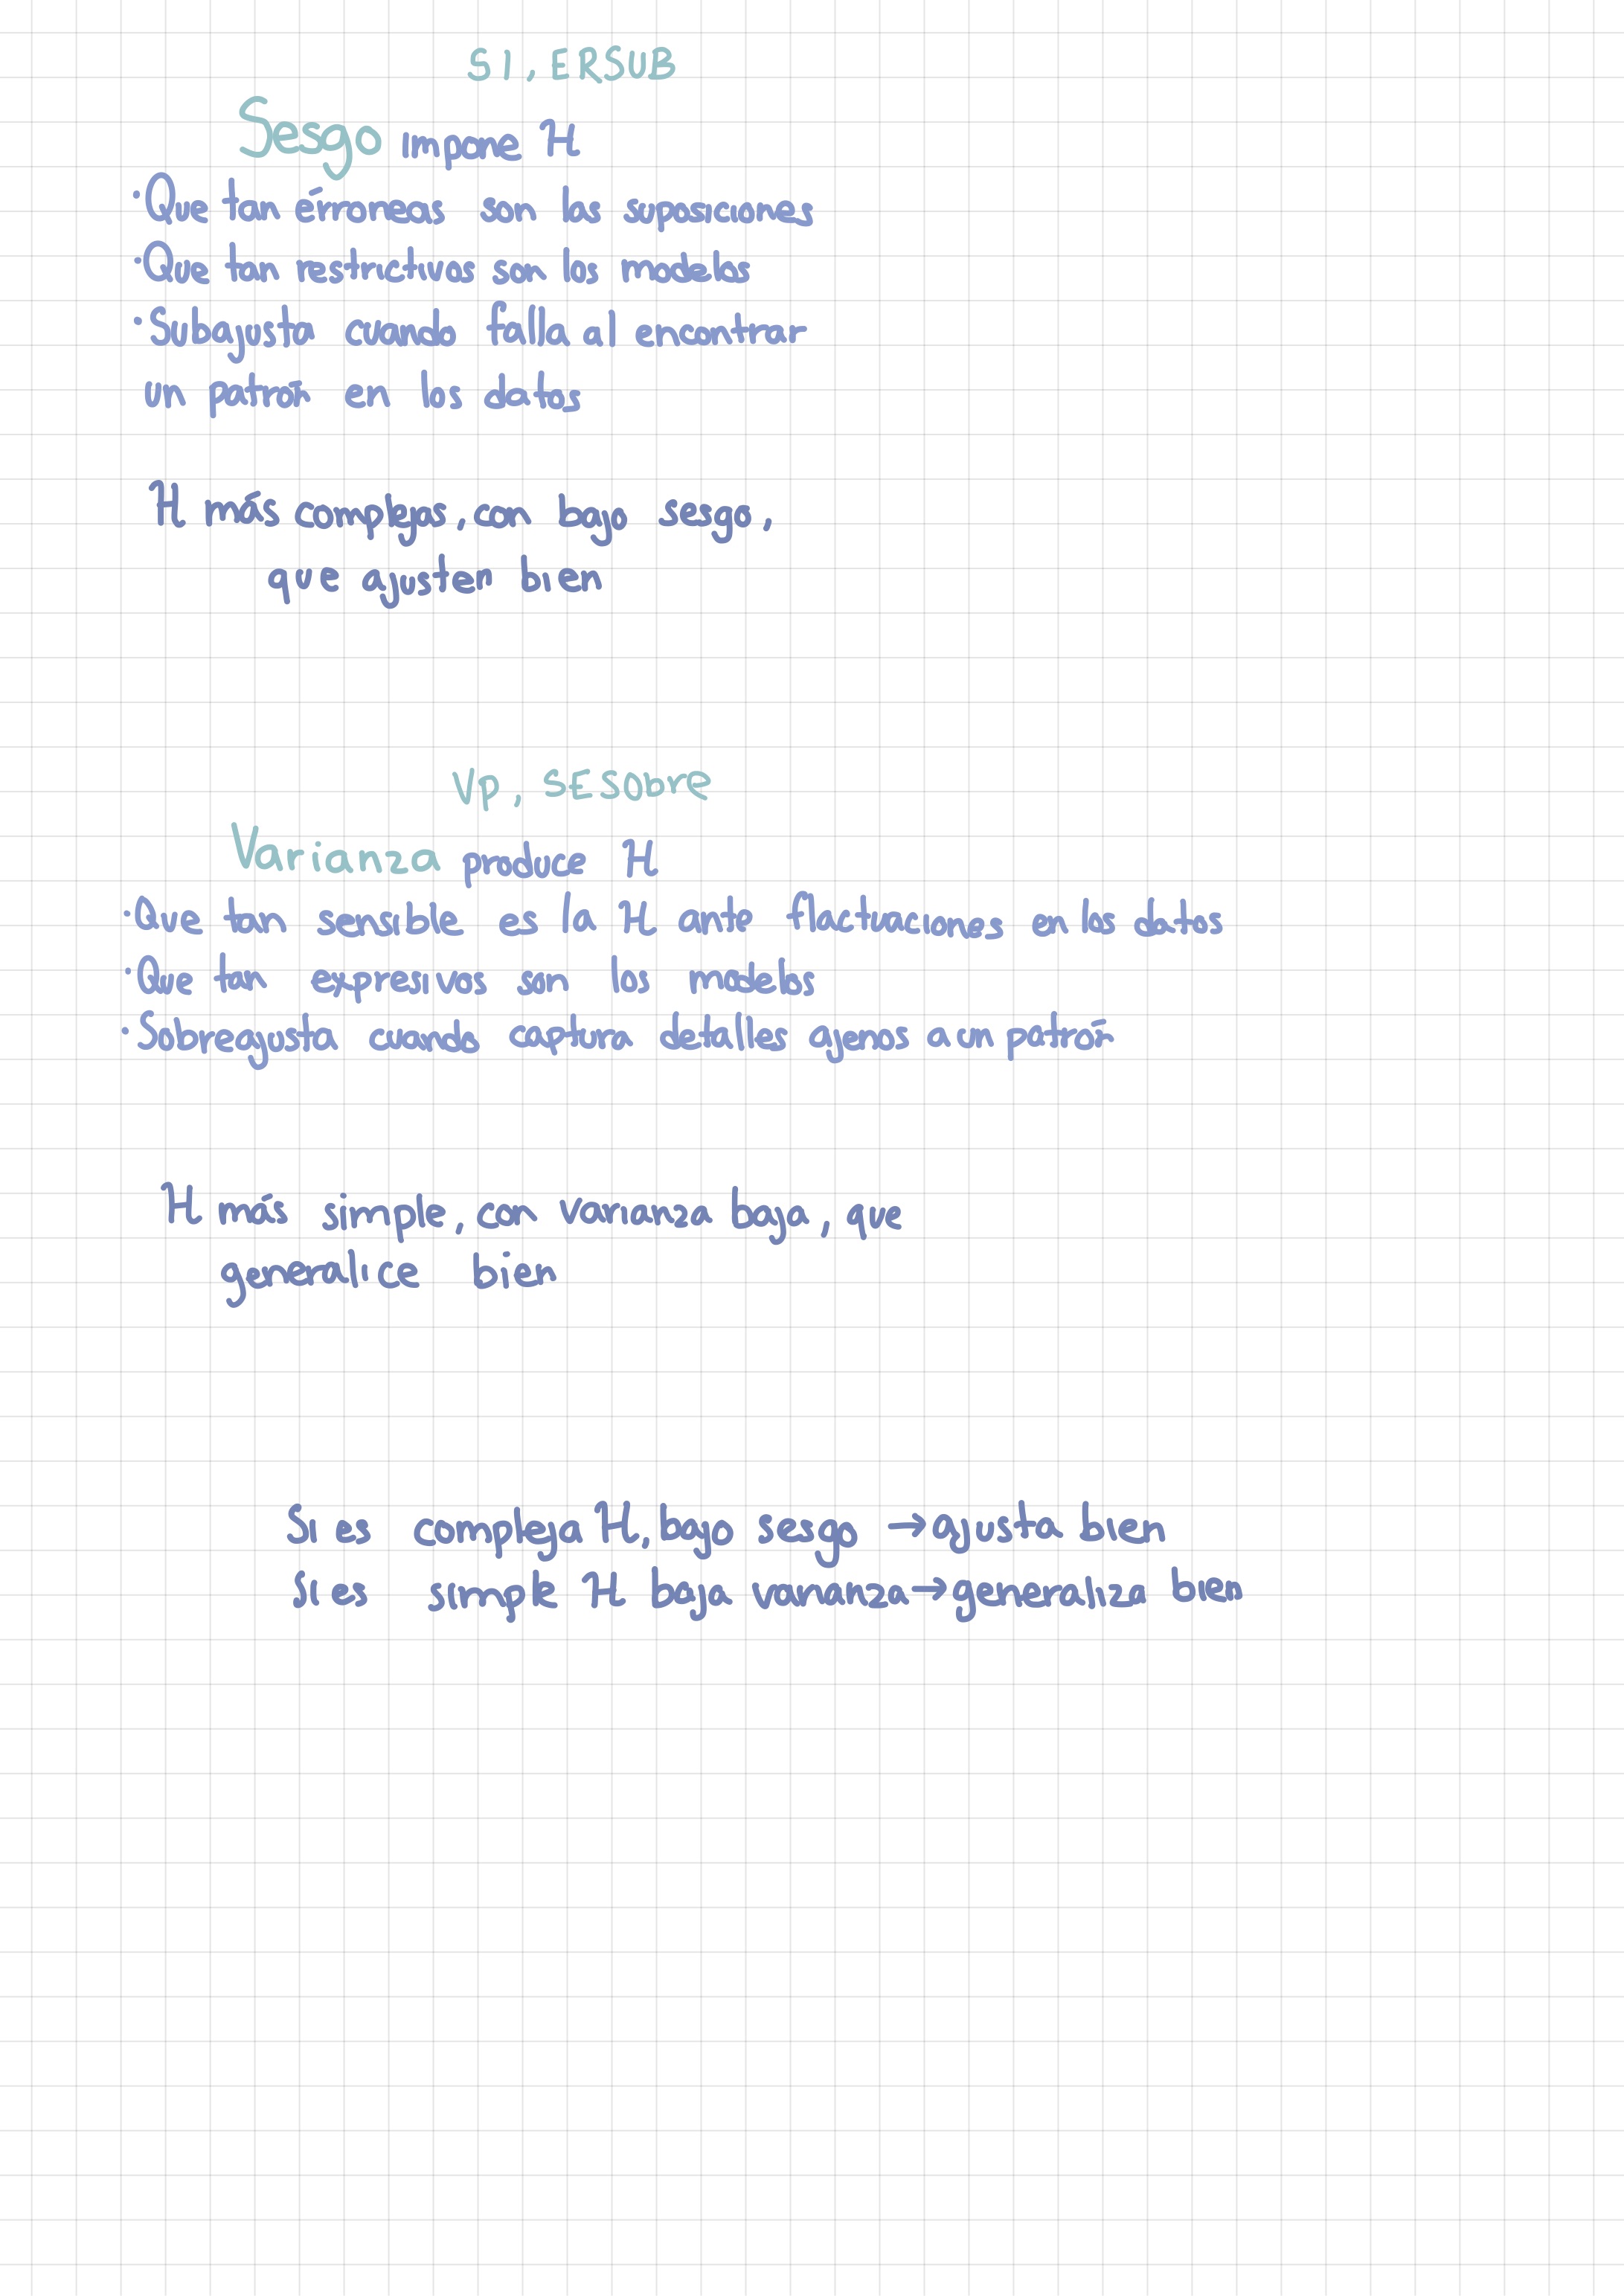 SI, ERSUB
Sesgo impone H
·Que tan érroneas son las suposiciones
·Que tan restrictivos son los modelos
·Subajusta cuando falla al encontrar
un patrón en los datos
H más complejas, con bajo sesgo,
que ajusten bien
Vp, SESobre
Varianza produce H
·Que tan sensible es la H ante flactuaciones en los datos
·Que tan expresivos son los modelos
·Sobreajusta cuando captura detalles ajenos a un patrón
H más simple, con varianza baja, que
generalice bien
Si es compleja H, bajo sesgo → ajusta bien
Si es simple H baja varianza → generaliza bien